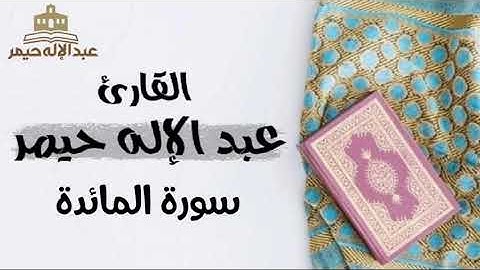 عبد الإله حيمر
القارئ
عبد الإله حيمر
سورة المائدة